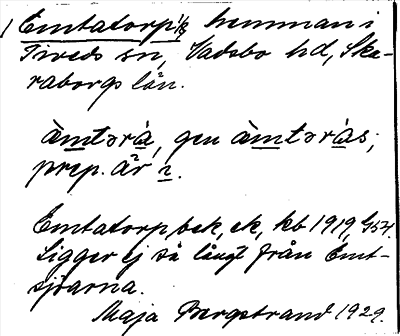 1 Emtatorp 1/8 hemman i
Tiveds sn, Vadsbo hd, Ska-
raborgs län.
ämtərà, gen ämtəràs;
prep. är i.
Emtatorp, bek, ek, kb 1919, G54.
Ligger ej så långt från Emt-
sjöarna.
Maja Bergstrand 1929.